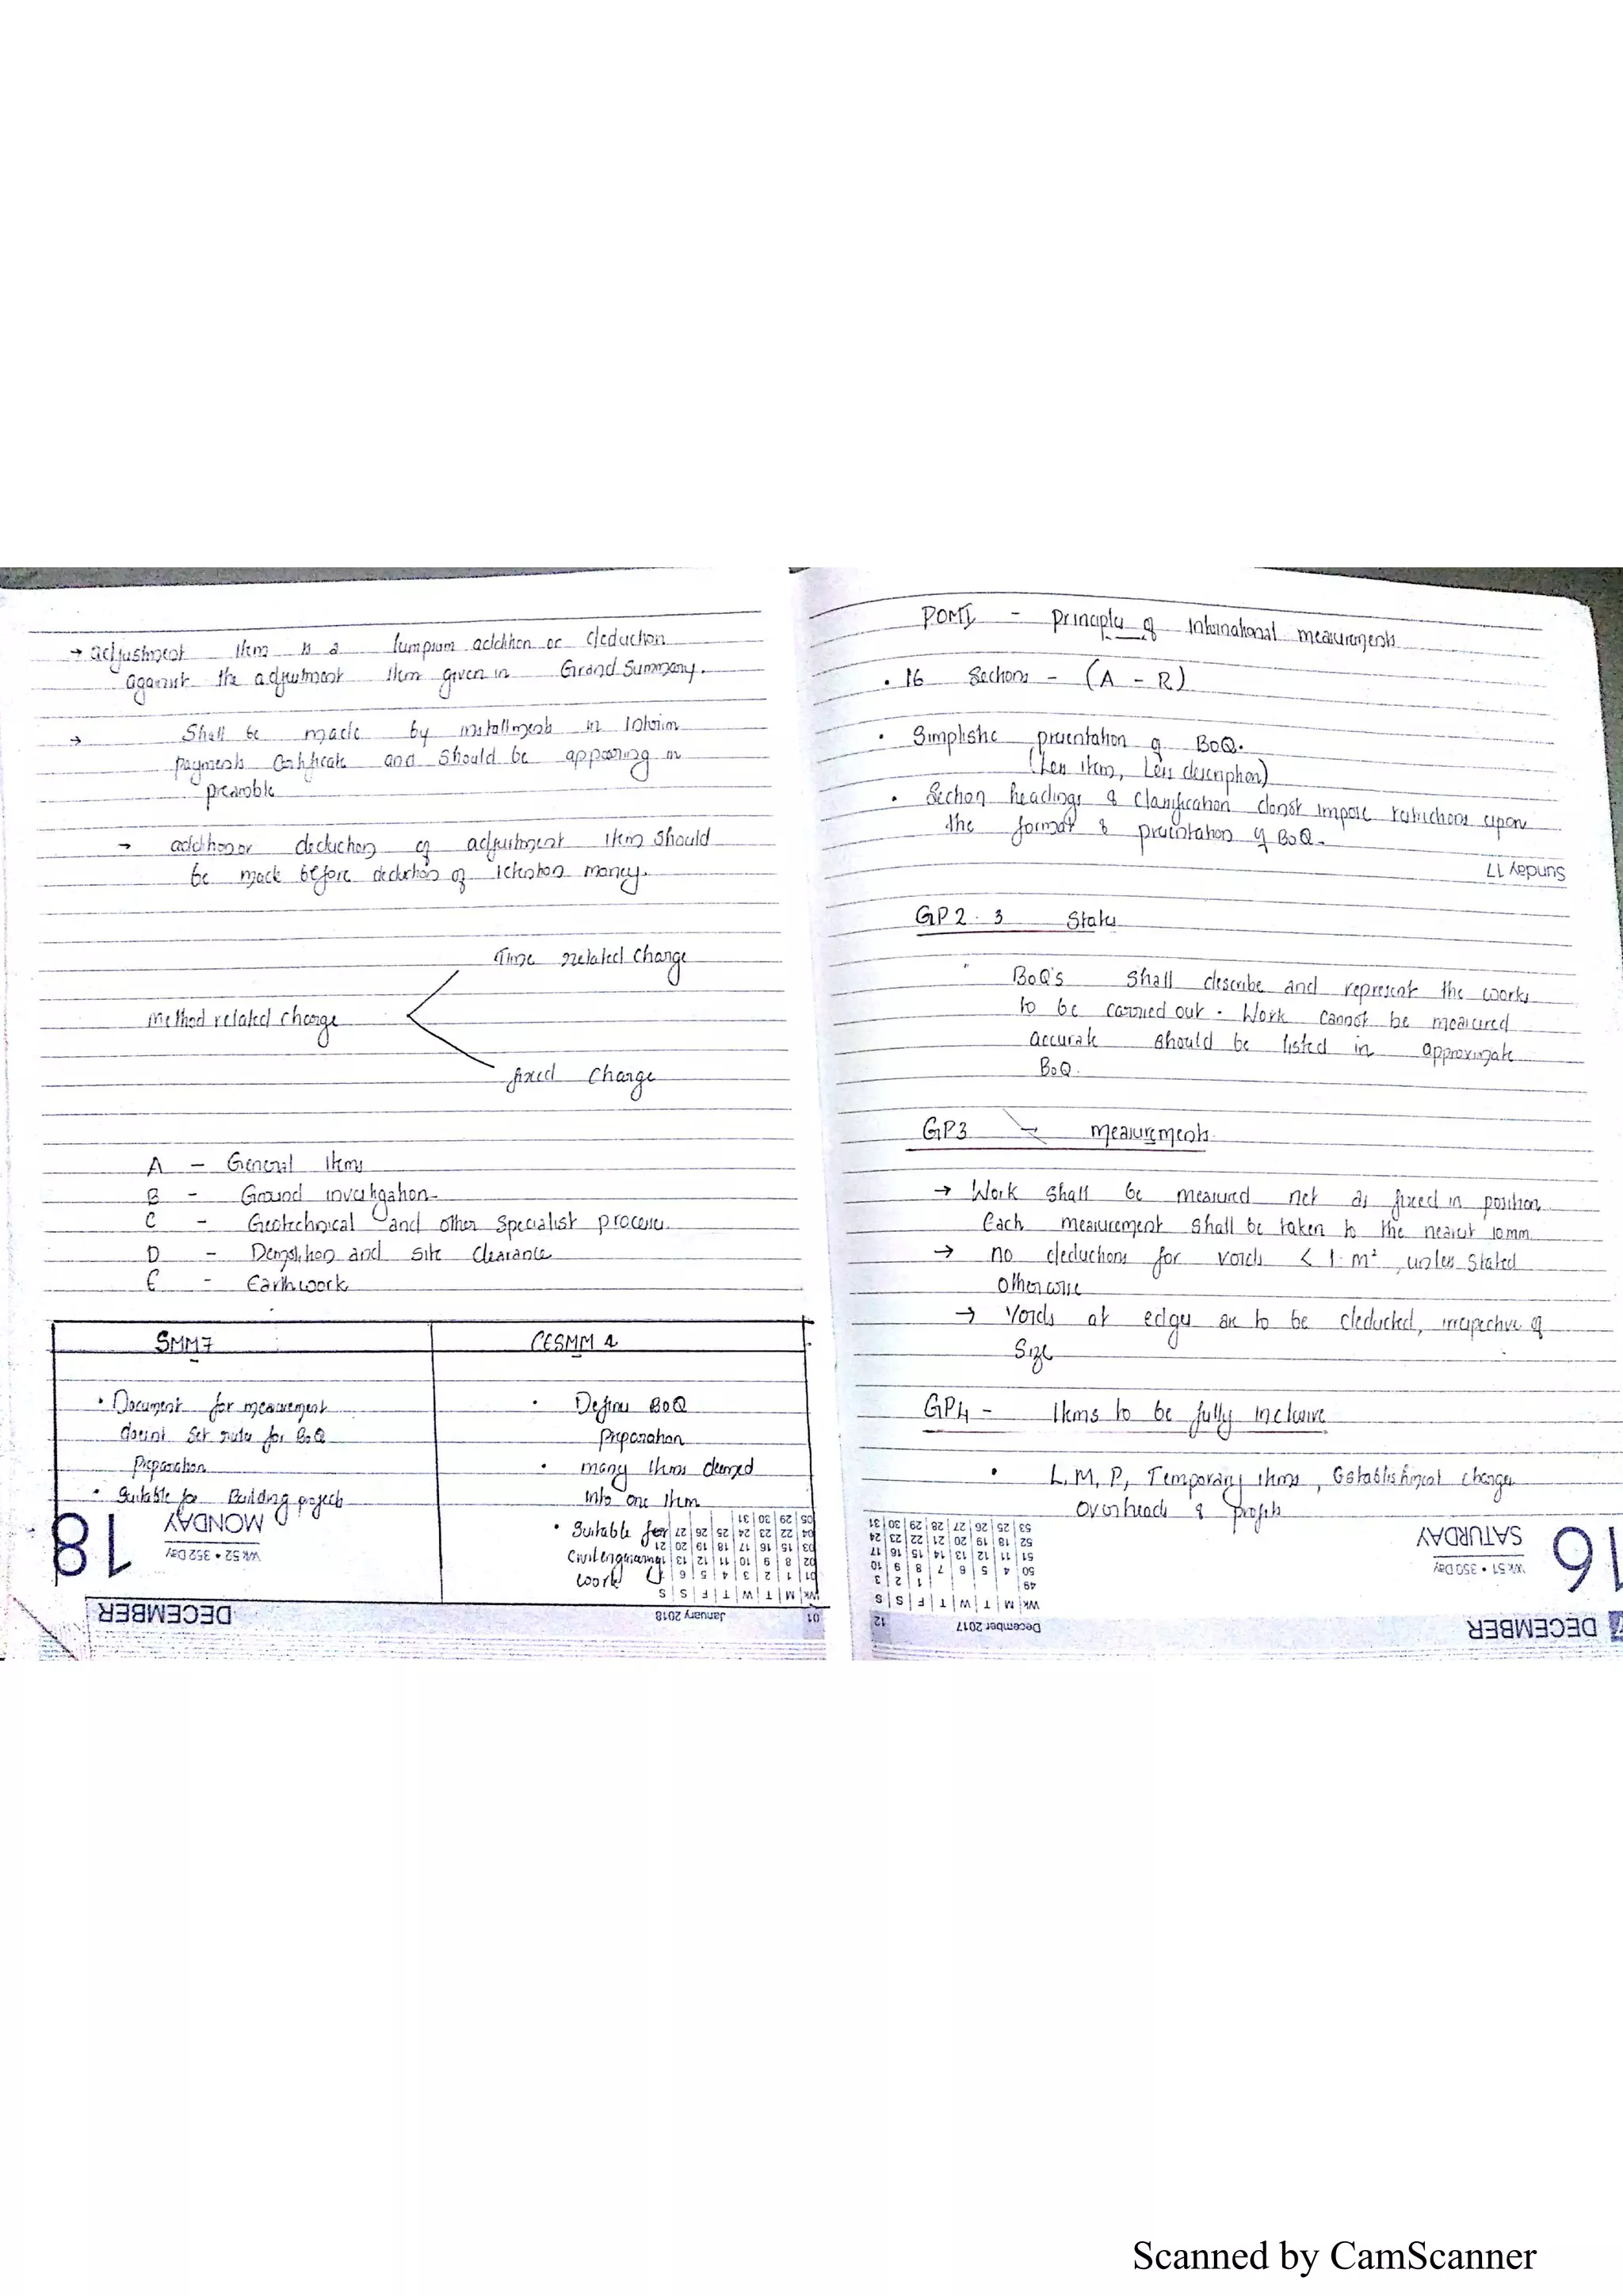 → adjustment item is a lumpsum addition or deduction
against the adjustment item given in Grand Summary.
→ Shall be made by installments in Interim
payments Certificate and should be appearing in
preamble
→ addition or deduction of adjustment item should
be made before deduction of retention money.
Time related Charge
Method related charge
fixed charge
A - General items
B - Ground investigation
C - Geotechnical and other specialist process
D - Demolition and site Clearance
E - Earthwork
SMM7
CESMM 4
• Document for measurement
doesnt set rules for BoQ
Preparation
• Suitable for Building projects
• Defines BoQ
preparation
• many items deemed
into one item
• Suitable for
Civil engineering
work
18
MONDAY
Wk 52 • 352 Day
05 29 30 31
04 22 23 24 25 26 27
03 15 16 17 18 19 20 21
02 8 9 10 11 12 13
01 1 2 3 4 5 6
Wk M T W T F S S
01 January 2018
DECEMBER
POMI - principles of International measurements
• 16 Sections - (A - R)
• Simplistic presentation of BoQ.
(Less item, Less description)
• Section headings & classification donst impose restrictions upon
the format & presentation of BoQ.
Sunday 17
GP2.3 States
BoQ's shall describe and represent the works
to be carried out. Work cannot be measured
accurate should be listed in approximate
BoQ.
GP3 → measurements
→ Work shall be measured net as fixed in position
Each measurement shall be taken to the nearest 10mm
→ no deductions for voids < 1 m² , unless stated
otherwise
→ Voids at edges are to be deducted, irrespective of
Size
GP4 - Items to be fully inclusive
• L, M, P, Temporary items, Establishment charge
overheads & profits
53 25 26 27 28 29 30 31
52 18 19 20 21 22 23 24
51 11 12 13 14 15 16 17
50 4 5 6 7 8 9 10
49 1 2 3
Wk M T W T F S S
12 December 2017
16
SATURDAY
Wk 51 • 350 Day
DECEMBER
Scanned by CamScanner